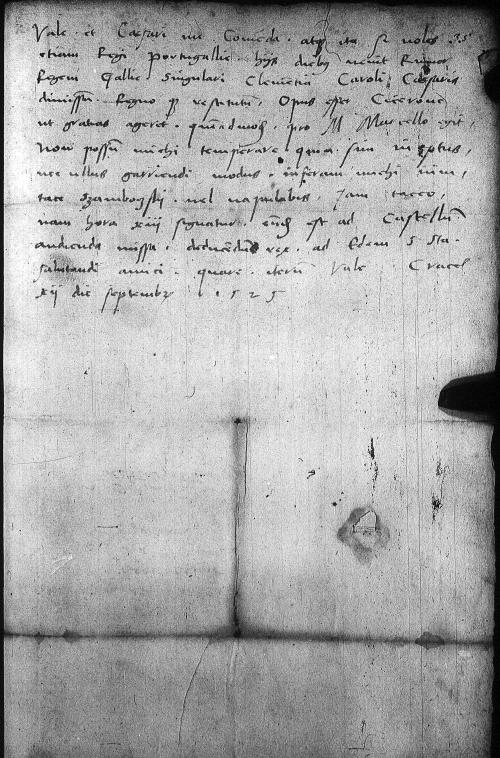 Vale et Caesari me Comeda. atq ita si voles 35
etiam Regi Portugallie hijs dieb venit Rumor
Regem Gallie Singulari Clementia Caroli Caesaris
dimissu Regno p restitutu, Opus esset Cicerone
ut gratias ageret. quéadmod. pro M Marcello egit,
Non possu michi temperare quia sum ineptus,
nec ullus garriendi modus. inferam michi vim,
tace Szamboczkj. vel vapulabis. Jam taceo,
nam hora xiij signatur. eud est ad Castellu
audienda missa. deducédus rex. ad Edem S Sta.
salutandi amici. quare. iteru Vale Cracch
xij die septembr 1525